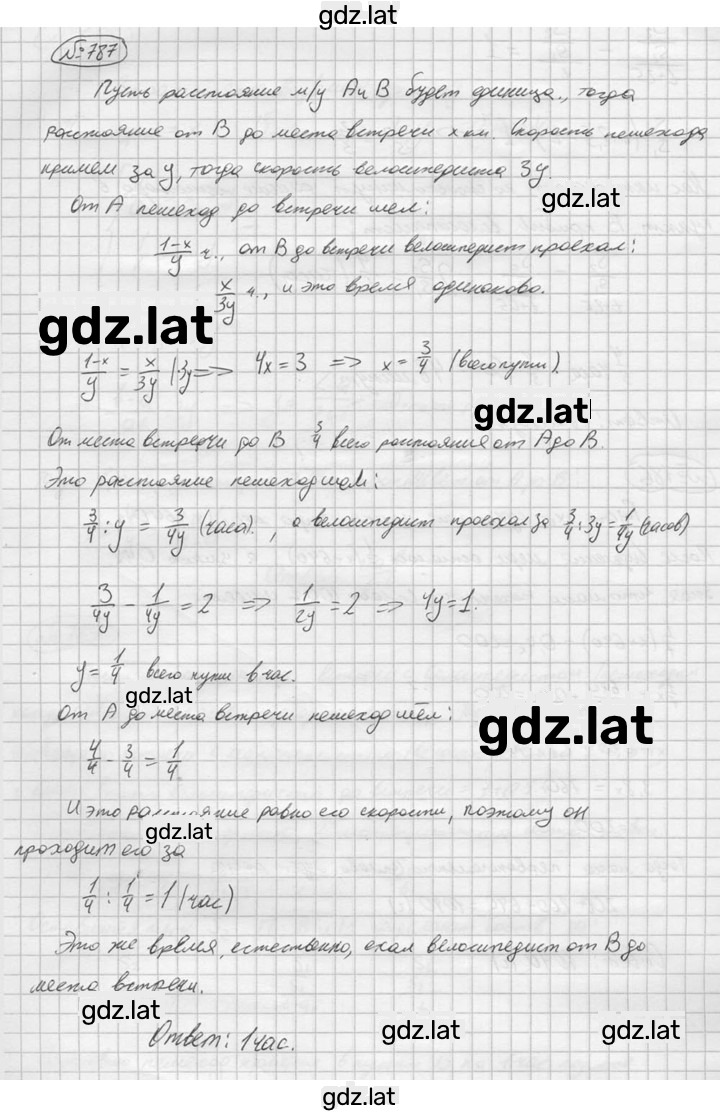 gdz.lat
№787
Пусть расстояние м/у А и В будет единица., тогда
расстояние от В до места встречи x км. Скорость пешехода
примем за y, тогда скорость велосипедиста 3y.
gdz.lat
От А пешеход до встречи шел:
(1-x)/y ч., от В до встречи велосипедист проехал:
x/3y ч., и это время одинаково.
gdz.lat
(1-x)/y = x/3y |·3y => 4x = 3 => x = 3/4 (всего пути).
gdz.lat
От места встречи до В 3/4 всего расстояния от А до В.
Это расстояние пешеход шел:
3/4 : y = 3/4y (часа)., а велосипедист проехал за 3/4 : 3y = 1/4y (часов)
3/4y - 1/4y = 2 => 1/2y = 2 => 4y = 1.
y = 1/4 всего пути в час.
gdz.lat
От А до места встречи пешеход шёл:
gdz.lat
4/4 - 3/4 = 1/4
И это расстояние равно его скорости, поэтому он
gdz.lat
проходит его за
1/4 : 1/4 = 1 (час)
Это же время, естественно, ехал велосипедист от В до
места встречи.
gdz.lat
Ответ: 1 час.
gdz.lat
gdz.lat
gdz.lat